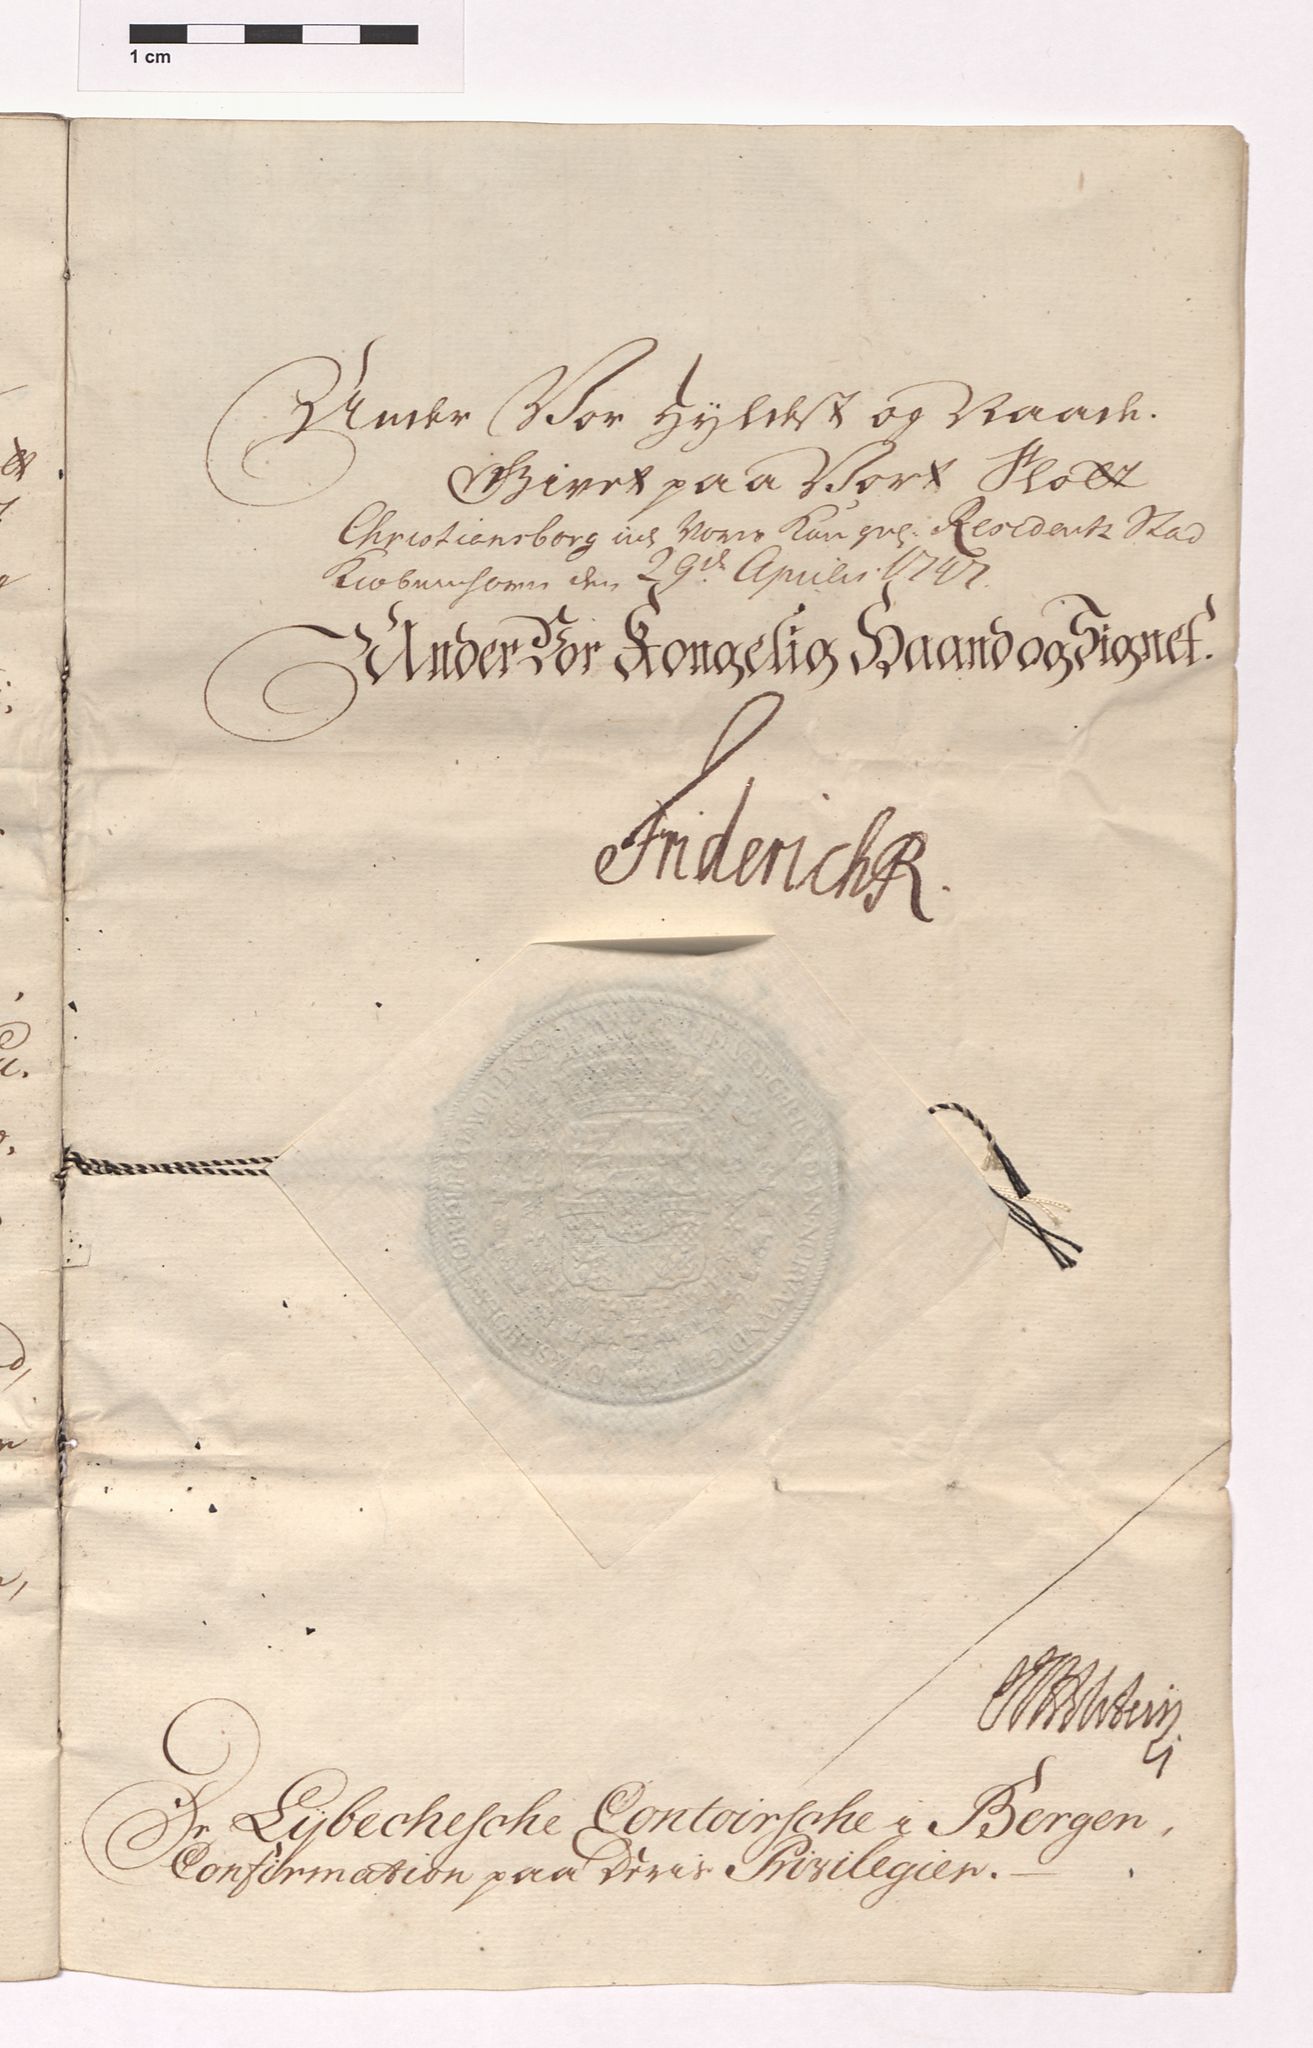 1 cm
Under Vor Hyldest og Naade.
Givet paa Vort Slott
Christiansborg udj Vores Kongel: Residentz Stad
Kiøbenhavn den 29de Aprilis 1747.
Under Vor Kongelig Haand og Signet.
Friderich R.
De Lÿbechesche Contoirsche i Bergen,
Confirmation paa deris Privilegier.